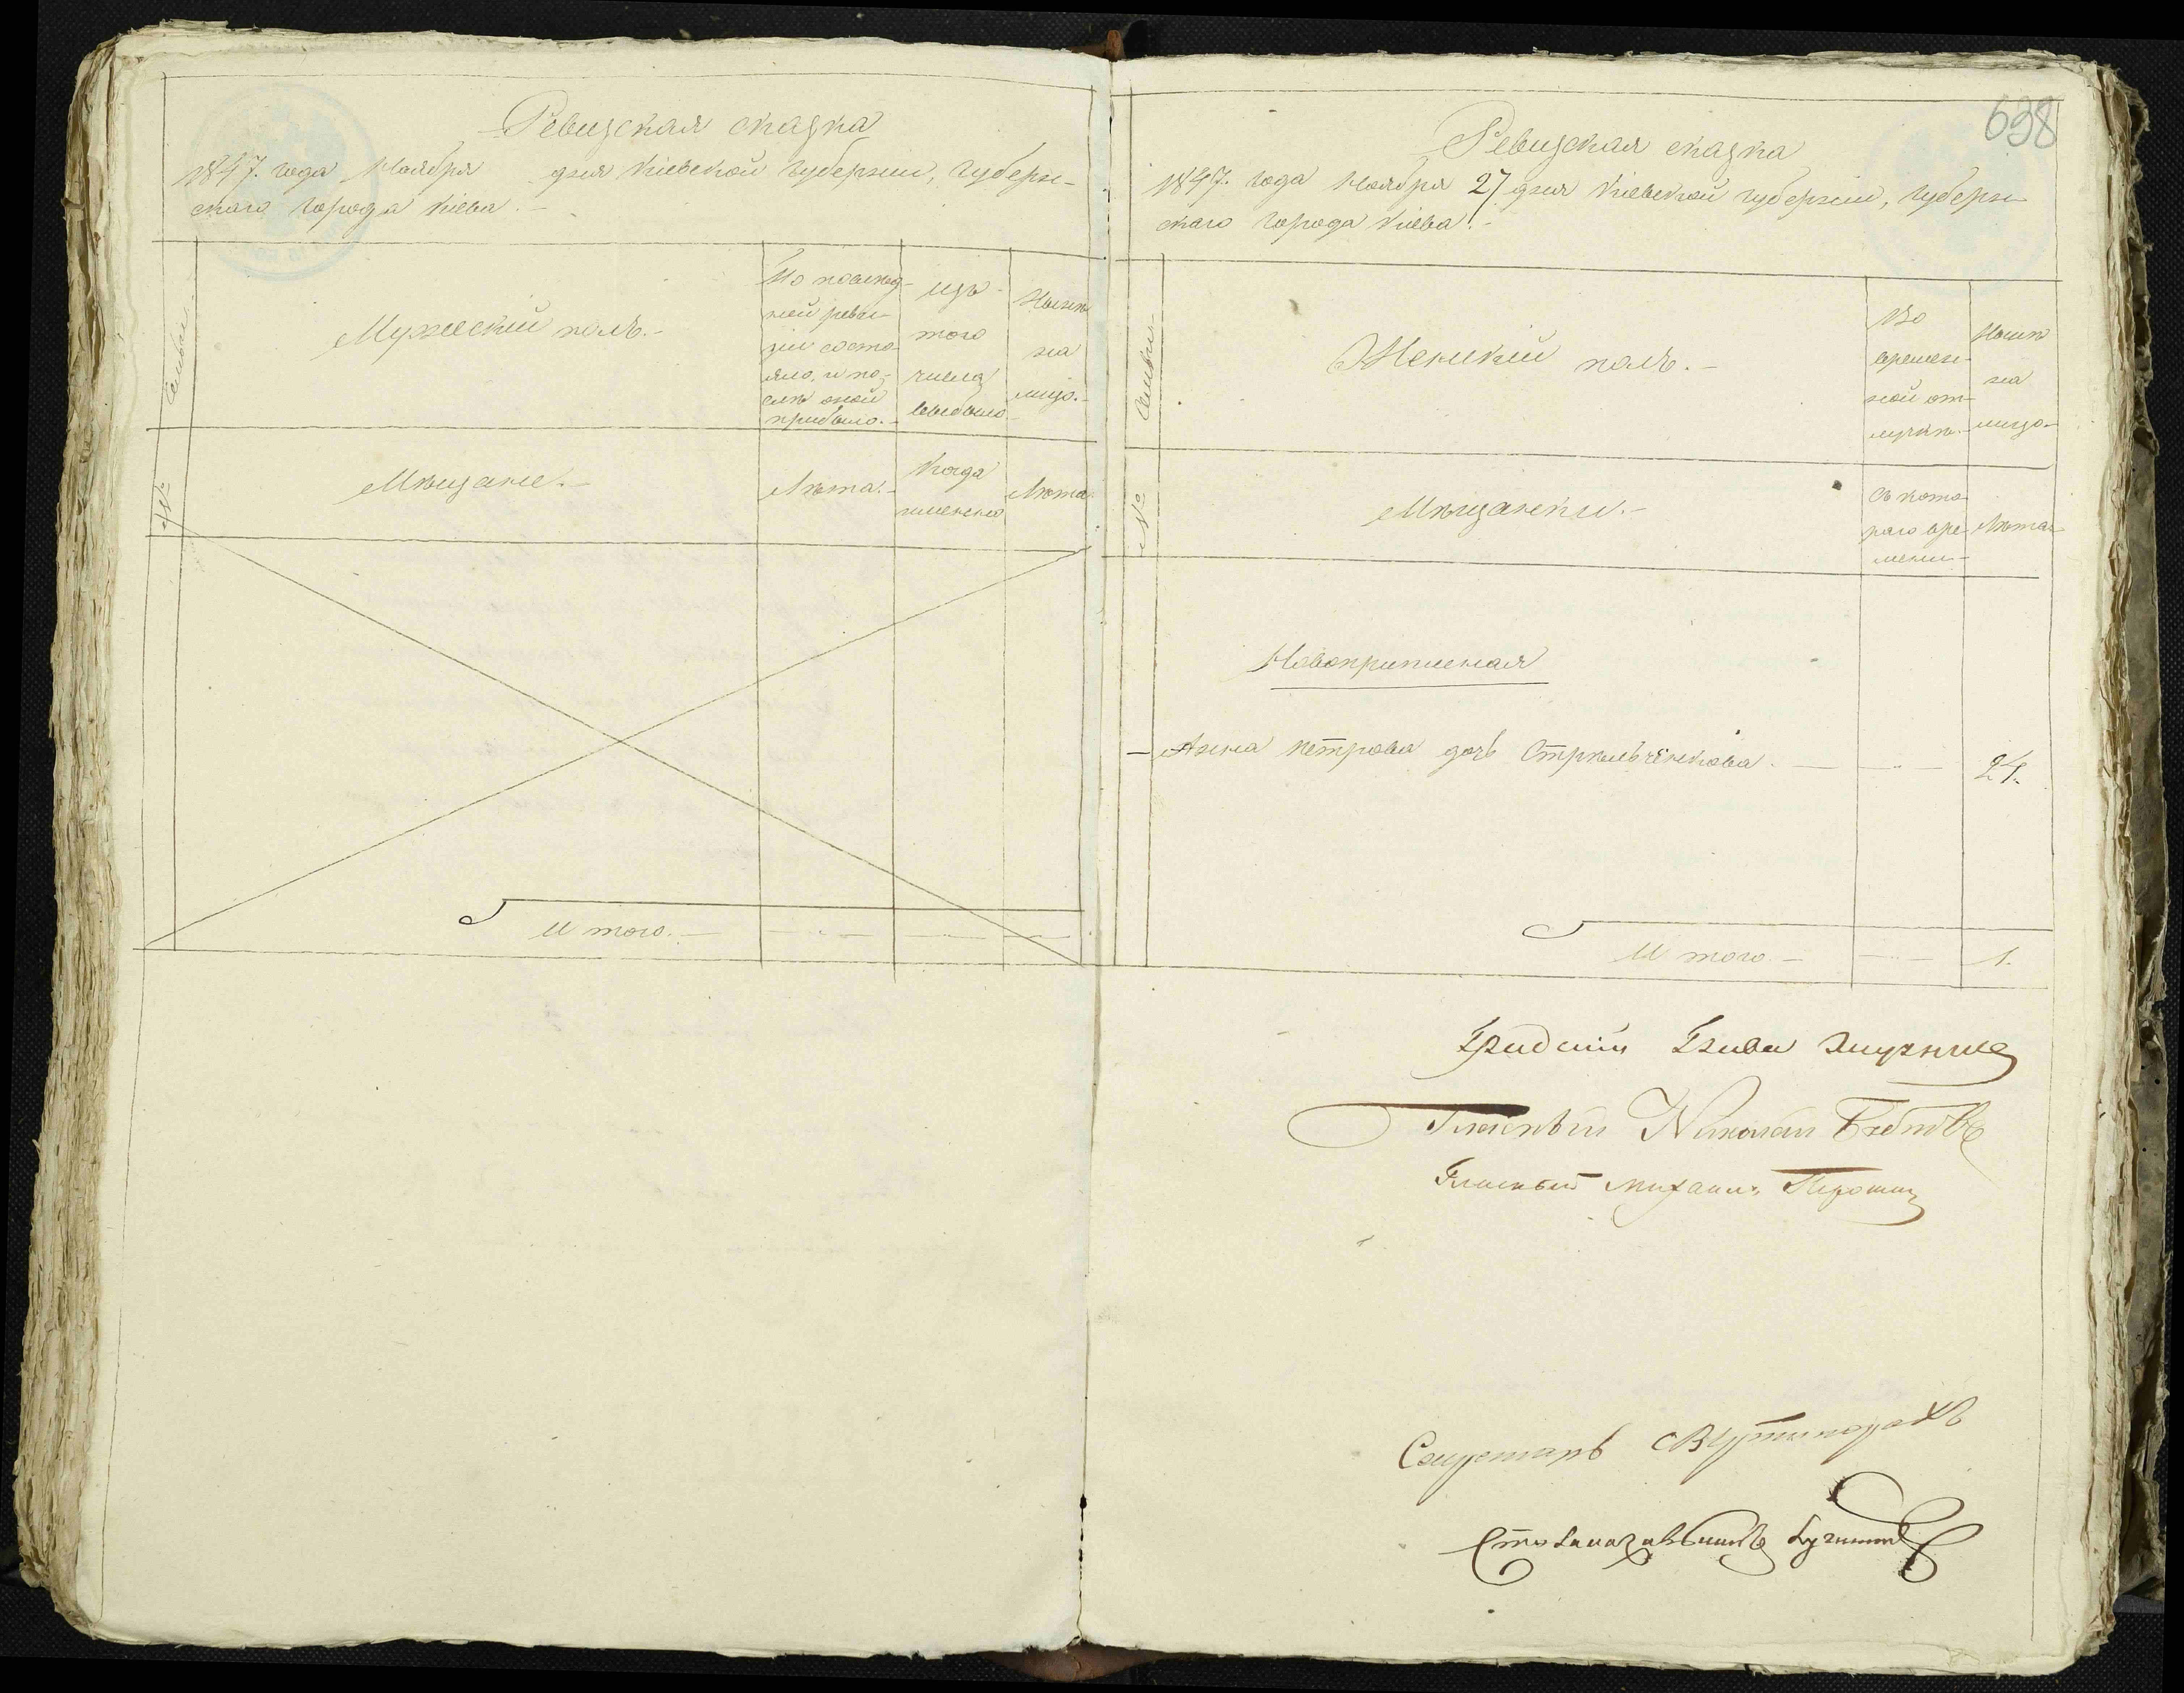 Ревизская сказка
1847. года Ноября дня Кіевской губерніи, Губерн-
скаго города Кіева.-
Семьи.-
Мужескій полъ.-
По послѣд-
ней реви-
зіи состо-
яло, и по-
слѣ оной
прибыло.-
Изъ
того
числа
выбыло
Нынѣ
на
лицо.-
№
Мѣщане.-
Лѣта.-
Когда
именно
Лѣта.
И того.-
638
Ревизская сказка
1847. года Ноября 27 дня Кіевской губерніи, Губерн-
скаго города Кіева.-
Семьи.-
Женскій полъ.-
Во
времен-
ной от-
лучкѣ.-
Нынѣ
на
лицо-
№
Мѣщанки.-
Съ кото-
раго вре-
мени-
Лѣта-
Новоприписная
Анна Петрова дочь Стрѣльченкова. 21.
И того.- 1.
Градскій Глава
Гласный Николай
Гласный Михаилъ
Секретарь
Столоначальникъ